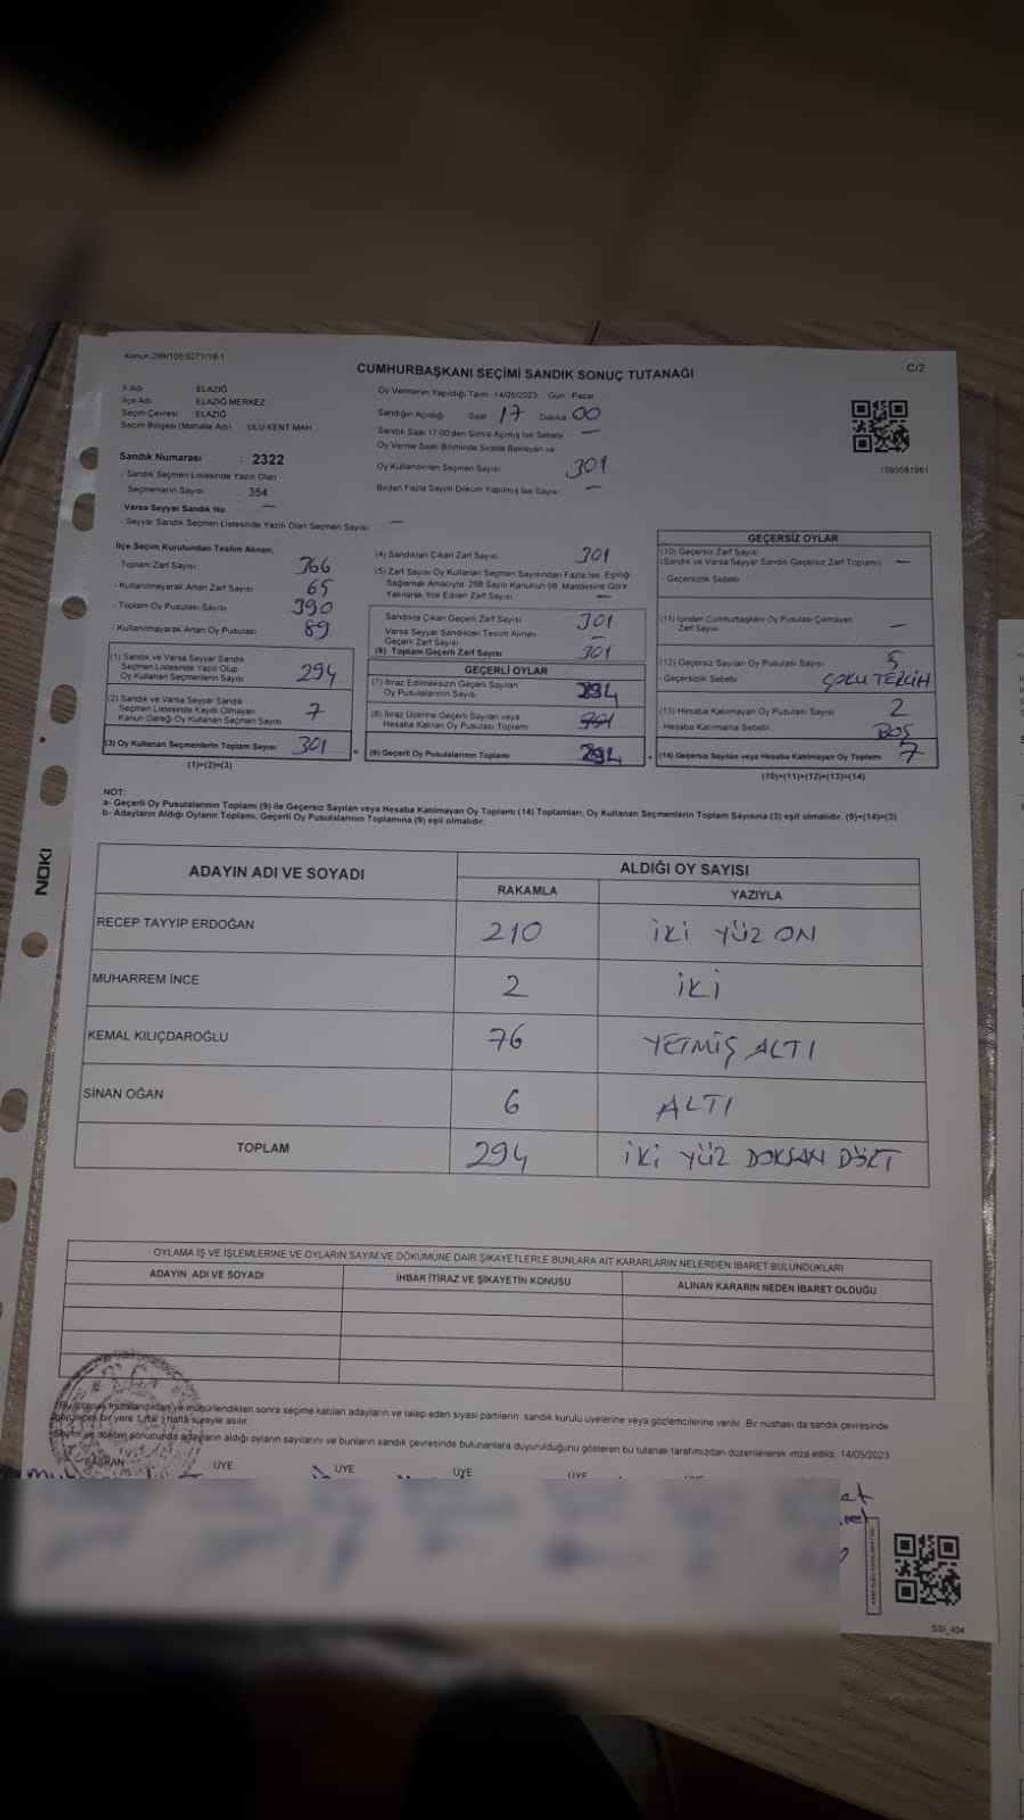 Konun 298/105 6271/18-1
CUMHURBAŞKANI SEÇİMİ SANDIK SONUÇ TUTANAĞI
C/2
İl Adı ELAZIĞ
İlçe Adı ELAZIĞ MERKEZ
Seçim Çevresi ELAZIĞ
Seçim Bölgesi (Mahalle Adı) ULUKENT MAH
Sandık Numarası : 2322
- Sandık Seçmen Listesinde Yazılı Olan
Seçmenlerin Sayısı 354
Varsa Seyyar Sandık No —
- Seyyar Sandık Seçmen Listesinde Yazılı Olan Seçmen Sayısı —
Oy Vermenin Yapıldığı Tarih 14/05/2023 Gün Pazar
Sandığın Açıldığı Saat 17 Dakika 00
Sandık Saat 17:00'den Sonra Açılmış İse Sebebi —
Oy Verme Saati Bitiminde Sırada Bekleyen ve
Oy Kullandırılan Seçmen Sayısı 301
Birden Fazla Sayım Döküm Yapılmış İse Sayısı —
İlçe Seçim Kurulundan Teslim Alınan;
Toplam Zarf Sayısı 366
- Kullanılmayarak Artan Zarf Sayısı 65
- Toplam Oy Pusulası Sayısı 390
- Kullanılmayarak Artan Oy Pusulası 89
(1) Sandık ve Varsa Seyyar Sandık
Seçmen Listesinde Yazılı Olup
Oy Kullanan Seçmenlerin Sayısı 294
(2) Sandık ve Varsa Seyyar Sandık
Seçmen Listesinde Kayıtlı Olmayan
Kanun Gereği Oy Kullanan Seçmen Sayısı 7
(3) Oy Kullanan Seçmenlerin Toplam Sayısı 301
(1)+(2)=(3)
(4) Sandıktan Çıkan Zarf Sayısı 301
(5) Zarf Sayısı Oy Kullanan Seçmen Sayısından Fazla İse, Eşitliği
Sağlamak Amacıyla 298 Sayılı Kanunun 98. Maddesine Göre
Yakılarak İmha Edilen Zarf Sayısı —
Sandıkta Çıkan Geçerli Zarf Sayısı 301
Varsa Seyyar Sandıktan Teslim Alınan
Geçerli Zarf Sayısı —
(6) Toplam Geçerli Zarf Sayısı 301
GEÇERLİ OYLAR
(7) İtiraz Edilmeksizin Geçerli Sayılan
Oy Pusulalarının Sayısı 294
(8) İtiraz Üzerine Geçerli Sayılan veya
Hesaba Katılan Oy Pusulası Toplamı
(9) Geçerli Oy Pusulalarının Toplamı 294
GEÇERSİZ OYLAR
(10) Geçersiz Zarf Sayısı
(Sandık ve Varsa Seyyar Sandık Geçersiz Zarf Toplamı) —
- Geçersizlik Sebebi
(11) İçinden Cumhurbaşkanı Oy Pusulası Çıkmayan
Zarf Sayısı —
(12) Geçersiz Sayılan Oy Pusulası Sayısı 5
- Geçersizlik Sebebi ÇOKLU TERCİH
(13) Hesaba Katılmayan Oy Pusulası Sayısı 2
Hesaba Katılmama Sebebi BOŞ
(14) Geçersiz Sayılan veya Hesaba Katılmayan Oy Toplamı 7
(10)+(11)+(12)+(13)=(14)
NOT:
a- Geçerli Oy Pusulalarının Toplamı (9) ile Geçersiz Sayılan veya Hesaba Katılmayan Oy Toplamı (14) Toplamları, Oy Kullanan Seçmenlerin Toplam Sayısına (3) eşit olmalıdır. (9)+(14)=(3)
b- Adayların Aldığı Oyların Toplamı, Geçerli Oy Pusulalarının Toplamına (9) eşit olmalıdır.
NOKI
ADAYIN ADI VE SOYADI
ALDIĞI OY SAYISI
RAKAMLA YAZIYLA
RECEP TAYYİP ERDOĞAN 210 İKİ YÜZ ON
MUHARREM İNCE 2 İKİ
KEMAL KILIÇDAROĞLU 76 YETMİŞ ALTI
SİNAN OĞAN 6 ALTI
TOPLAM 294 İKİ YÜZ DOKSAN DÖRT
OYLAMA İŞ VE İŞLEMLERİNE VE OYLARIN SAYIM VE DÖKÜMÜNE DAİR ŞİKAYETLERLE BUNLARA AİT KARARLARIN NELERDEN İBARET BULUNDUKLARI
ADAYIN ADI VE SOYADI İHBAR İTİRAZ VE ŞİKAYETİN KONUSU ALINAN KARARIN NEDEN İBARET OLDUĞU
Bu tutanak imzalandıktan ve mühürlendikten sonra seçime katılan adayların ve talep eden siyasi partilerin sandık kurulu üyelerine veya gözlemcilerine verilir. Bir nüshası da sandık çevresinde
görülecek bir yere 1 (bir) hafta süreyle asılır.
Sayım ve döküm sonucunda adayların aldığı oyların sayılarını ve bunların sandık çevresinde bulunanlara duyurulduğunu gösteren bu tutanak tarafımızdan düzenlenerek imza edildi. 14/05/2023
BAŞKAN ÜYE ÜYE ÜYE ÜYE